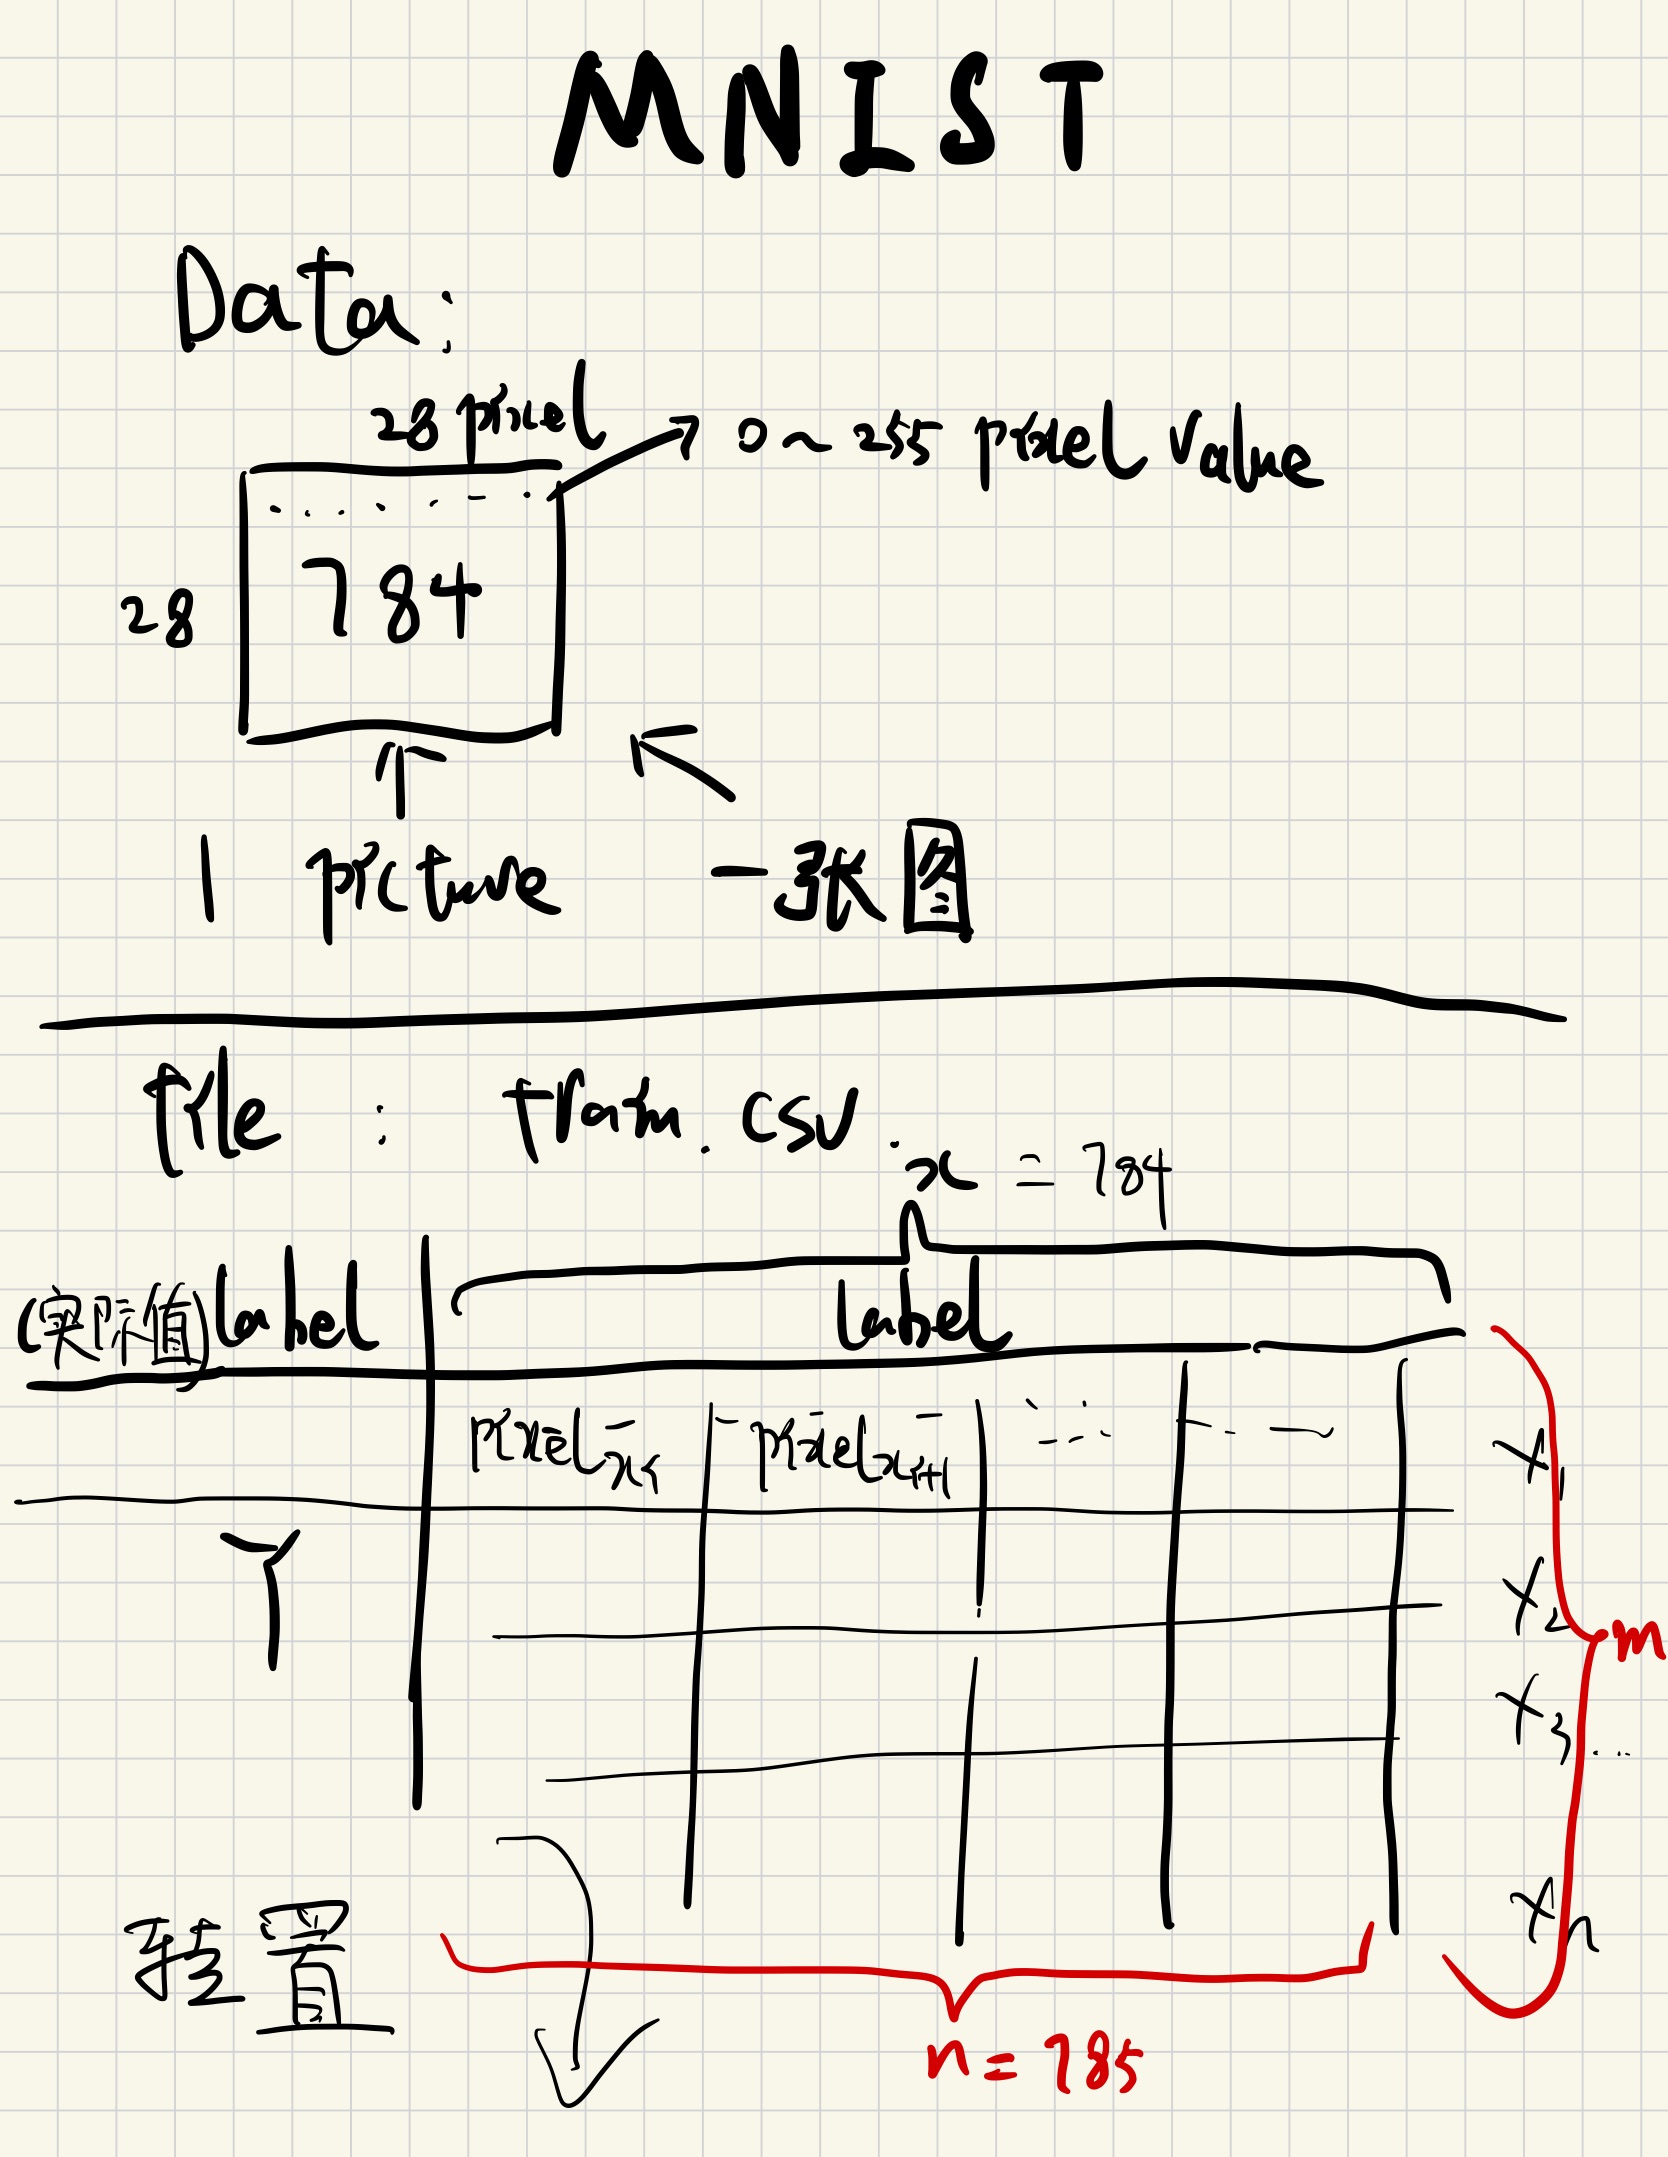 MNIST
Data:
28 pixel
0 ~ 255 pixel value
28
784
1 picture
一张图
file : train.csv.
x = 784
(实际值) label
label
pixel_xi
pixel_xi+1
Y
x1
x2
m
x3 ...
xn
转置
n = 785